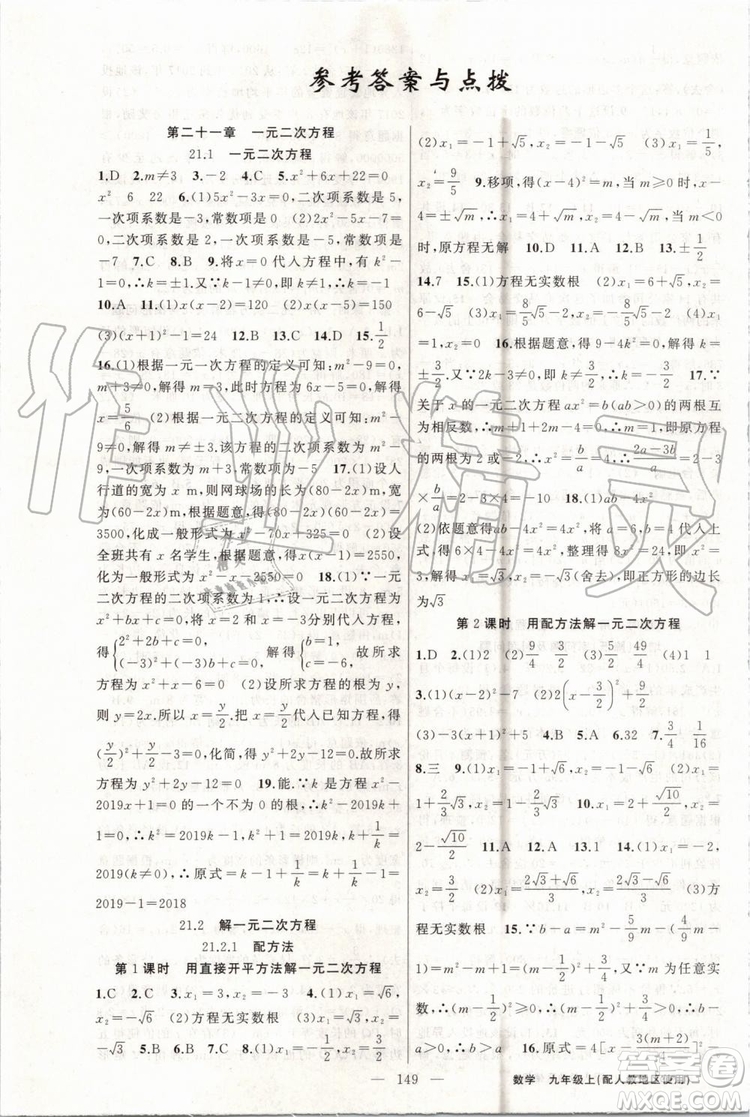 参考答案与点拨
第二十一章 一元二次方程
21.1 一元二次方程
1.D 2.m≠3 3.-2 4.C 5.x²+6x+22=0
x² 6 22 6.(1)3x²-3x=0,二次项系数是3,
一次项系数是-3,常数项是0 (2)2x²-5x-7=
0,二次项系数是2,一次项系数是-5,常数项是
-7 7.C 8.B 9.将x=0代入方程中,有k²-
1=0,解得k=±1.又∵k-1≠0,即k≠1,∴k=-1
10.A 11.(1)x(x-2)=120 (2)x(x-5)=150
(3)(x+1)²-1=24 12.B 13.C 14.B 15.1/2
16.(1)根据一元一次方程的定义可知:m²-9=0,
m+3≠0,解得m=3,此时方程为6x-5=0,解得
x=5/6 (2)根据一元二次方程的定义可知:m²-
9≠0,解得m≠±3,该方程的二次项系数为m²-
9,一次项系数为m+3,常数项为-5 17.(1)设人
行道的宽为x m,则网球场的长为(80-2x) m,
宽为(60-2x) m,根据题意得(80-2x)(60-2x)=
3500,化成一般形式为x²-70x+325=0 (2)设
全班共有x名学生,根据题意,得x(x-1)=2550,
化为一般形式为x²-x-2550=0 18.(1)∵一元
二次方程的二次项系数为1,∴设所求方程为
x²+bx+c=0,把x=2和x=-3分别代入方程,
得{2²+2b+c=0, (-3)²-3b+c=0,解得{b=1, c=-6,∴所求
方程为x²+x-6=0 (2)设所求方程的根为y,
则y=2x.所以x=y/2.把x=y/2代入已知方程,得
(y/2)²+y/2-3=0,化简,得y²+2y-12=0.故所求
方程为y²+2y-12=0 19.能.∵k是方程x²-
2019x+1=0的一个不为0的根,∴k²-2019k+
1=0,∴k²=2019k-1,k²+1=2019k,∴k+1/k=
2019,∴原式=k²-2018k+1/k=k-1+1/k=
2019-1=2018
21.2 解一元二次方程
21.2.1 配方法
第1课时 用直接开平方法解一元二次方程
1.C 2.C 3.x₁=3,x₂=-3 4.(1)x₁=√6,
x₂=-√6 (2)方程无实数根 (3)x₁=√3,x₂=
-√3 5.B 6.B 7.D 8.(1)x₁=3,x₂=-1
(2)x₁=-1+√5,x₂=-1-√5 (3)x₁=1/5,
x₂=9/5 9.移项,得(x-4)²=m,当m≥0时,x-
4=±√m,∴x₁=4+√m,x₂=4-√m;当m<0
时,原方程无解 10.D 11.A 12.A 13.±1/2
14.7 15.(1)方程无实数根 (2)x₁=6+√5,x₂=
-6-√5 (3)x₁=8/5√5-2,x₂=-8/5√5-2 (4)x₁=
0,x₂=-10 16.根据题意,得9-4k²=0,解得k=
±3/2,又∵2k-3≠0,∴k≠3/2,∴k=-3/2 17.∵
关于x的一元二次方程ax²=b(ab>0)的两根互
为相反数,∴m+1+2m-4=0,∴m=1,即原方程
的两根为2或-2,∴x²=b/a=4,∴(2a-3b)/a=2-3
×b/a=2-3×4=-10 18.(1)面积=ab-4x²
(2)依题意得ab-4x²=4x²,将a=6,b=4代入上
式,得6×4-4x²=4x²,整理得8x²=24,解得
x²=3,∴x₁=√3,x₂=-√3(舍去),即正方形的边长
为√3
第2课时 用配方法解一元二次方程
1.D 2.(1)25 5 (2)9/4 3/2 (3)49/4 7/2 (4)1 1
3.(1)(x-2)²-1=0 (2)2(x-3/2)²-9/2=0
(3)-3(x+1)²+5=0 4.A 5.A 6.32 7.±3/4 1/16
8.三 9.(1)x₁=-1+√6,x₂=-1-√6 (2)x₁=
1+2/3√3,x₂=1-2/3√3 10.(1)x₁=2+√10/2,x₂=
2-√10/2 (2)x₁=2,x₂=1/2 11.A 12.A 13.-3
14.(1)x₁=7,x₂=2 (2)x₁=(2√3+√6)/3,x₂=(2√3-√6)/3 (3)方
程无实数根 15.∵b-a=m²-8/15m-(7/15m-1)=
m²-m+1=(m-1/2)²+3/4,又∵m为任意实
数,∴(m-1/2)²≥0,∴(m-1/2)²+3/4>0,∴b-
a>0,∴b>a 16.(1)∵原式=4[x-3(m+2)/8]²
— 149 —
数学 九年级上(配人教地区使用)
作业精灵